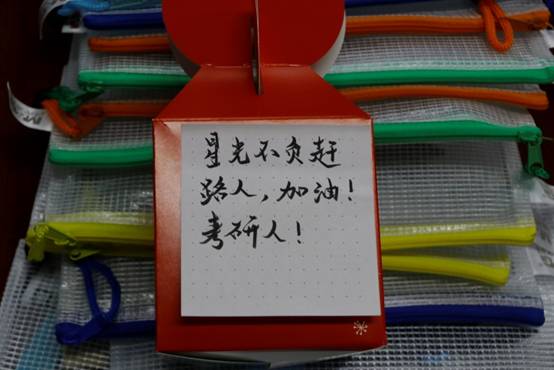 星光不负赶
路人，加油！
考研人！